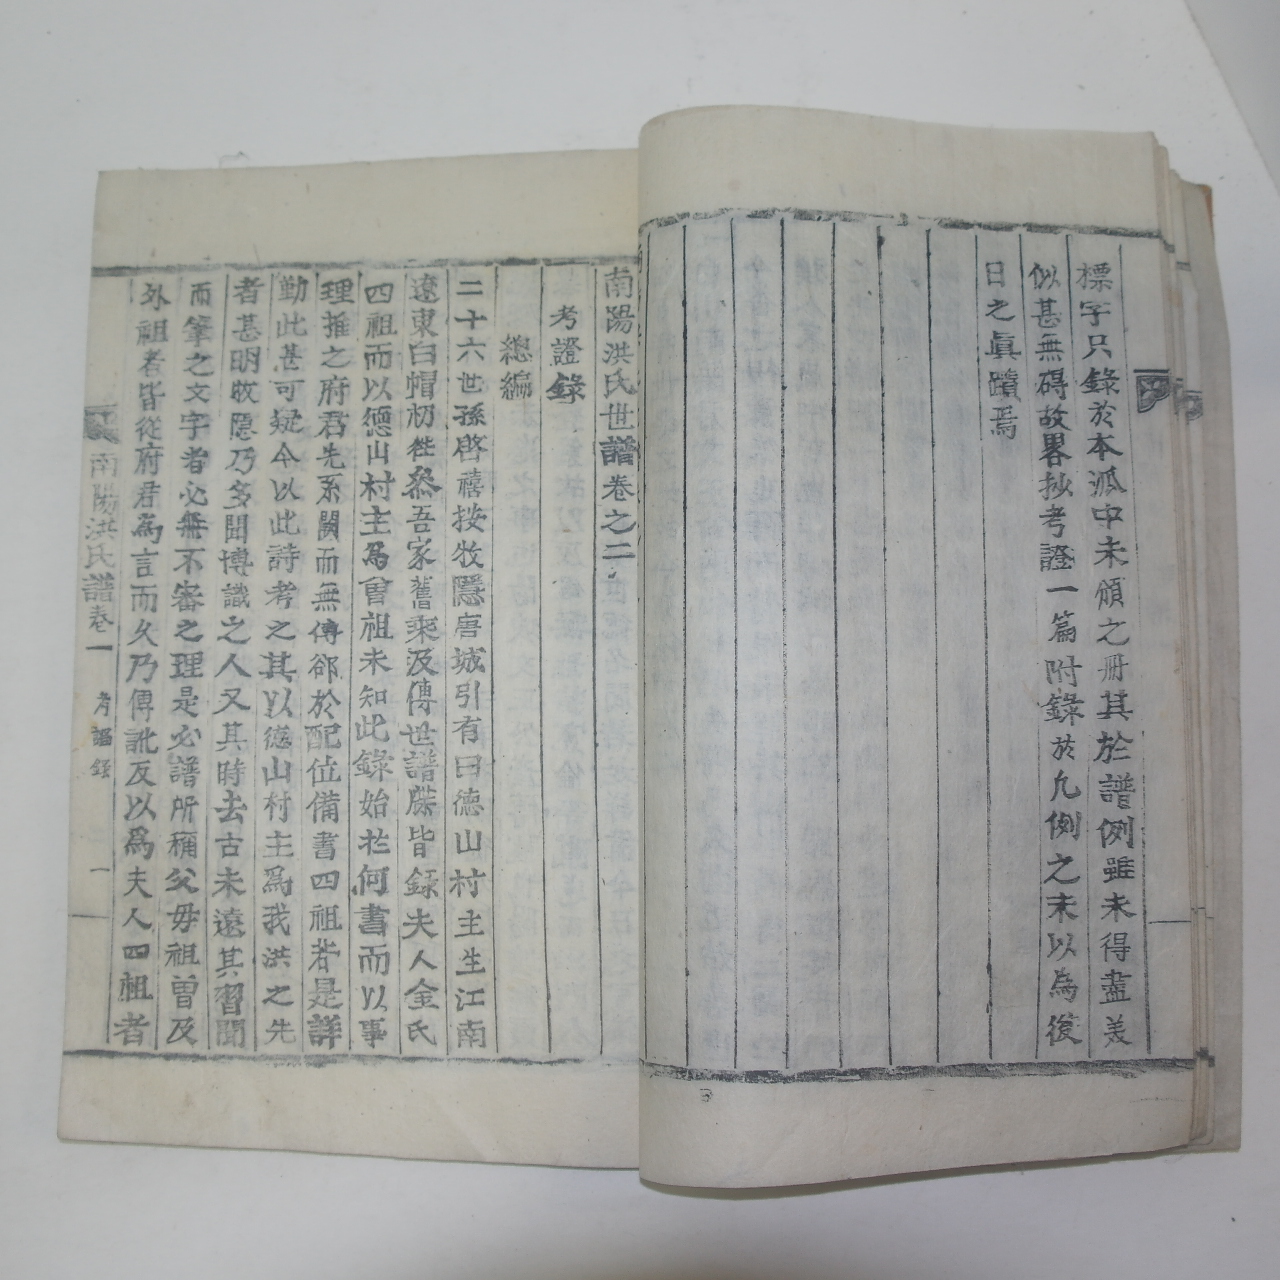 標字只錄於本派中未頒之冊其於譜例雖未得盡美
似甚無碍故畧抄考證一篇附錄於凡例之末以為後
日之眞蹟焉
南陽洪氏世譜卷之二
考證錄
總編
二十六世孫啓禧按牧隱唐城引有曰德山村主生江南
遼東白帽初徃叅吾家舊乘及傳世譜牒皆錄夫人金氏
四祖而以德山村主爲曾祖未知此錄始於何書而以事
理推之府君先系闕而無傳郤於配位備書四祖若是詳
勤此甚可疑今以此詩考之其以德山村主爲我洪之先
者甚明牧隱乃多聞博識之人又其時去古未遠其習聞
而筆之文字者必無不審之理是必譜所稱父母祖曽及
外祖者皆從府君為言而久乃傳訛反以爲夫人四祖者
南陽洪氏譜卷一 考證錄 一